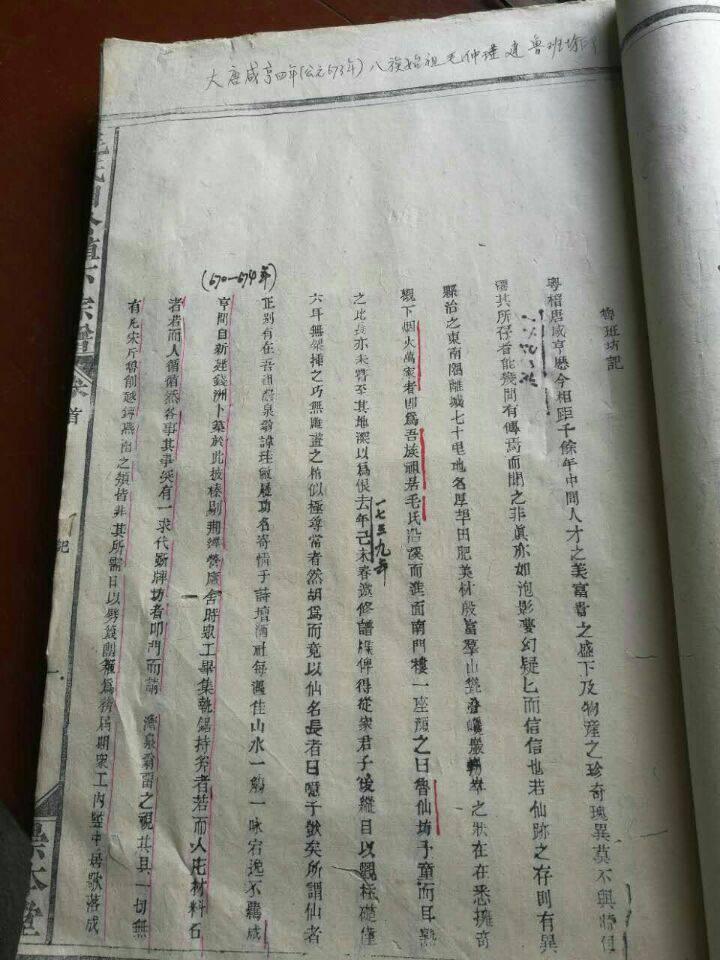 大唐咸亨四年(公元673年)八族始祖毛仲瑾建魯班坊
魯班坊記
粵稽唐咸亨歷今相距千餘年中間人才之美富貴之盛下及物產之珍奇瑰異莫不與時
其所存者能幾間有傳焉而聞之非真亦如泡影夢幻疑匕而信信也若仙跡之存則有異
縣治之東南隅離城七十里地名厚田肥美材殷富羣山聳巖之狀在在悉擁奇
觀下烟火萬家者即為吾族祖居毛氏沿溪而進面南門樓一座顏之曰魯仙坊予童而耳熟
一七三九年
之此長亦未嘗至其地深以為恨去年己未春邀修譜牒俾得從家君子後縱目以觀柱礎僅
六耳無架棟之巧無雕畫之精似極尋常者然胡為而竟以仙名長者曰噫子歎矣所謂仙者
正別有在吾祖濟泉翁諱瑾敝屣功名寄情于詩壇酒社每遇佳山水一觴一咏宕逸不羈咸
(670—674年)
亨間自新遷錢洲卜築於此披榛剔荆經營廬舍時眾工畢集執鋸持斧者若而人厇材料石
者若而人循循然各事其事矣有一求代斲牌坊者叩門而請濟泉翁畱之視其具一切無
有凡宋斤魯削越鎛燕函之類皆非其所需日以劈篾削為務屆期眾工內竪中居歌落成
首
記
一